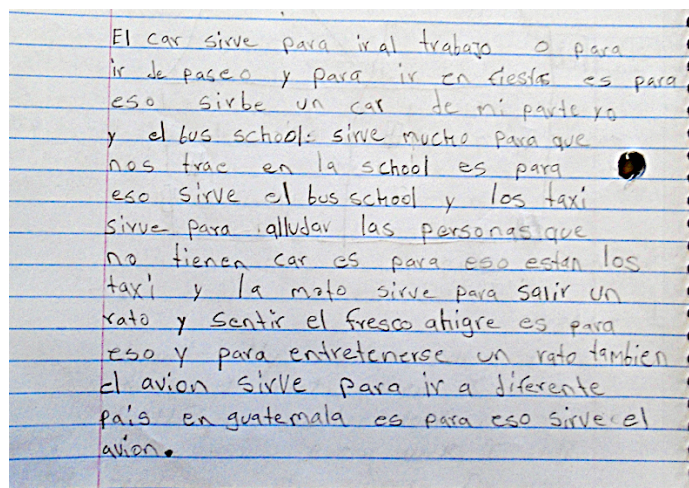 El car sirve para ir al trabajo o para
ir de paseo y para ir en fiestas es para
eso sirbe un car de mi parte yo
y el bus school: sirve mucho para que
nos trae en la school es para
eso sirve el bus school y los taxi
sirve para alludar las personas que
no tienen car es para eso estan los
taxi y la moto sirve para salir un
rato y sentir el fresco ahigre es para
eso y para entretenerse un rato tambien
el avion sirve para ir a diferente
país en guatemala es para eso sirve el
avion.